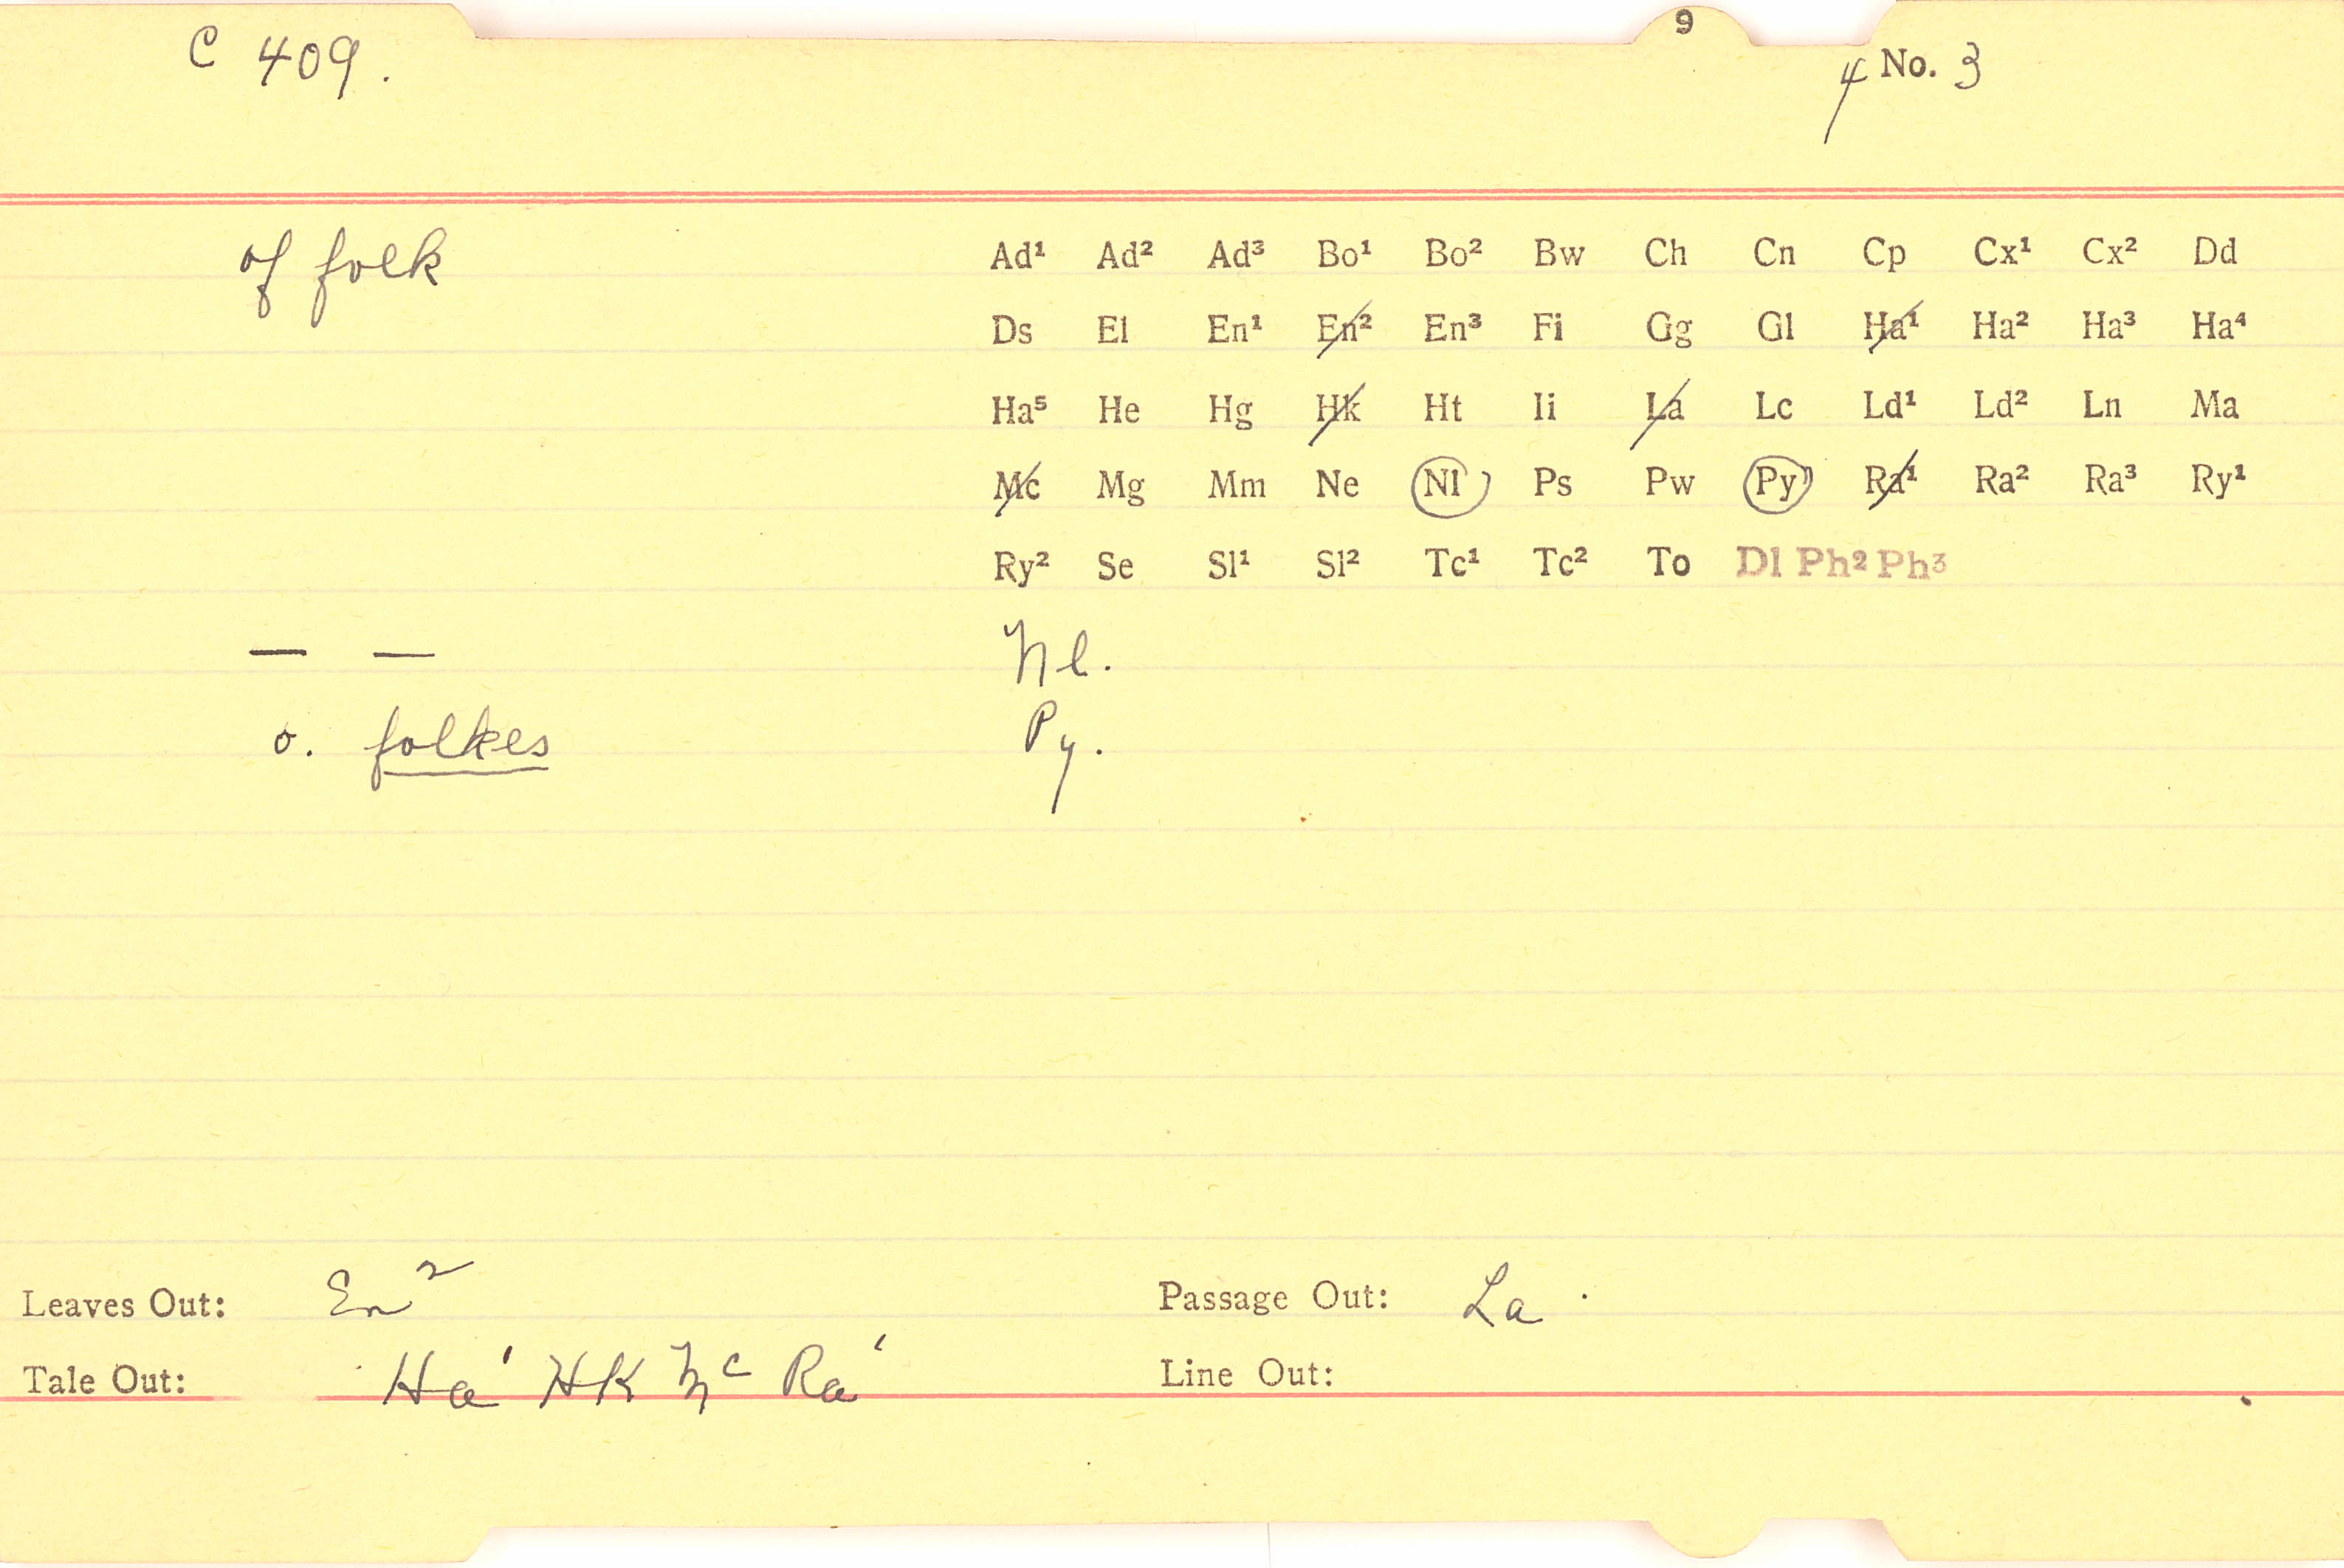 C 409.
9
4 No. 3
of folk
Ad¹ Ad² Ad³ Bo¹ Bo² Bw Ch Cn Cp Cx¹ Cx² Dd
Ds El En¹ En² En³ Fi Gg Gl Ha¹ Ha² Ha³ Ha⁴
Ha⁵ He Hg Hk Ht Ii La Lc Ld¹ Ld² Ln Ma
Mc Mg Mm Ne Nl Ps Pw Py Ra¹ Ra² Ra³ Ry¹
Ry² Se Sl¹ Sl² Tc¹ Tc² To Dl Ph² Ph³
— — Nl.
o. folkes Py.
Leaves Out: En² Passage Out: La
Tale Out: Ha¹ Hk Mc Ra¹ Line Out: